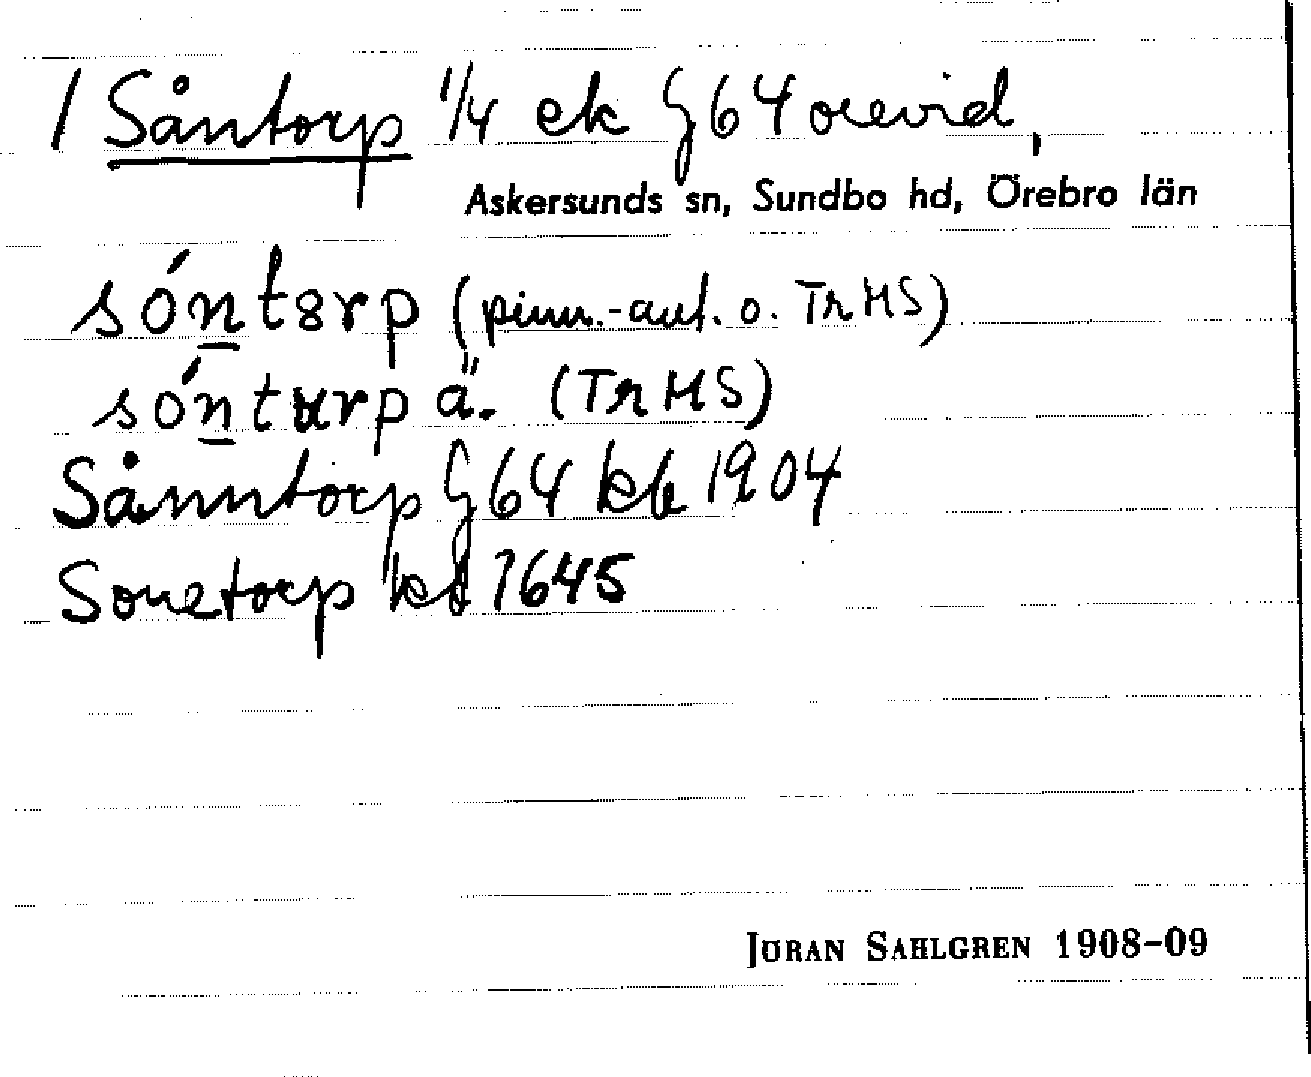 / Såntorp 1/4 ek G 64 orevid,
Askersunds sn, Sundbo hd, Örebro län
sóntərp (pinn.-ant. o. Tr HS)
sónturp ä. (Tr HS)
Sånntorp G 64 kb 1904
Sonetorp kb 1645
JÖRAN SAHLGREN 1908-09